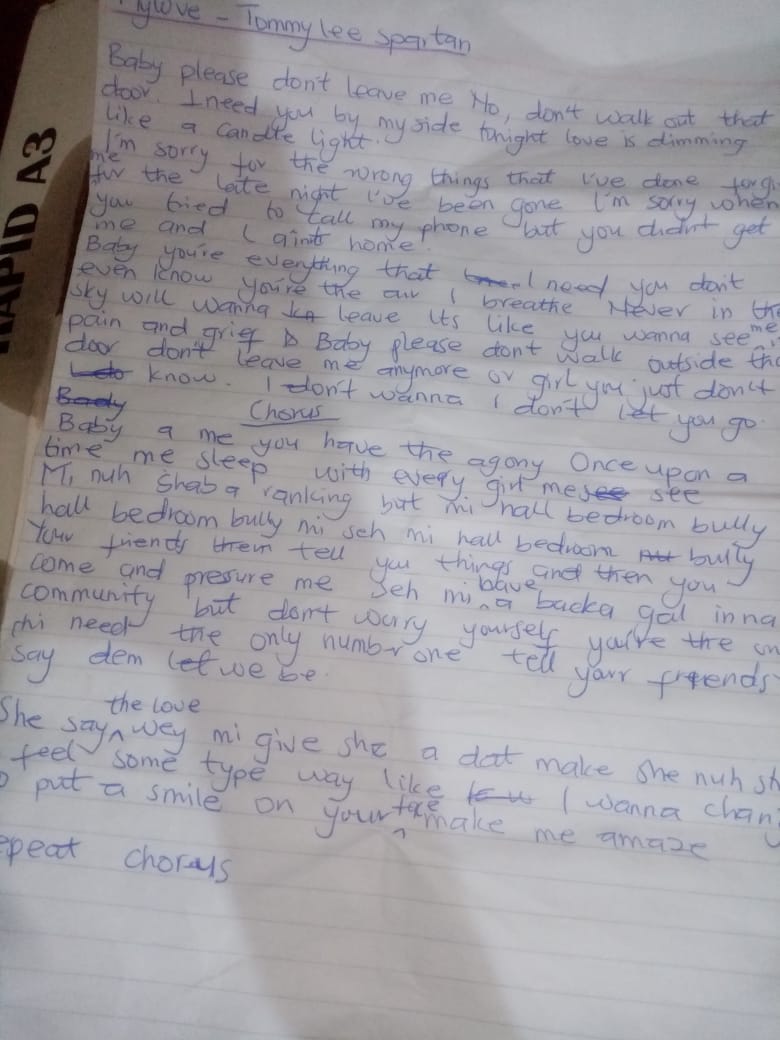 RAPID A3
Mylove - Tommy Lee Spartan
Baby please don't leave me No, don't walk out that
door. I need you by my side tonight love is dimming
like a candle light.
I'm sorry for the wrong things that I've done forgi
me
for the late night I've been gone I'm sorry when
you tried to call my phone but you didn't get
me and I ain't home.
Baby you're everything that I need you don't
even know you're the air I breathe Never in the
sky will wanna leave its like you wanna see me in
pain and grief Baby please dont walk outside the
door don't leave me anymore or girl you just don't
know. I don't wanna I don't let you go.
Chorus
Baby a me you have the agony Once upon a
time me sleep with every girl me see
Mi nuh Shaba ranking but mi nall bedroom bully
hall bedroom bully mi seh mi hall bedroom bully
Your friends tell you things and then you
come and presure me Seh mi have a backa gal inna
community but don't worry yourself you're the on
mi need the only number one tell your friends
say dem let we be.
She say the love wey mi give she a dat make she nuh st
feel some type way like I wanna chan
o put a smile on your face make me amaze
epeat chorus